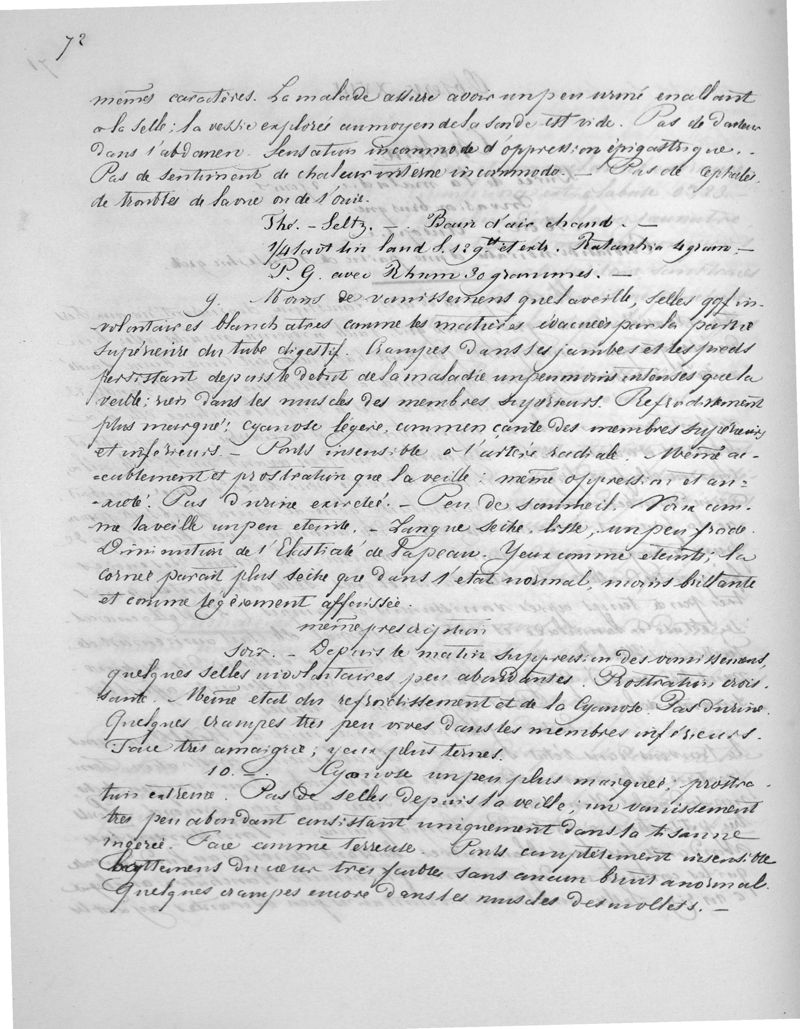 72
mêmes caractères. La malade assure avoir un peu uriné en allant
a la selle; la vessie explorée au moyen de la sonde est vide. Pas de douleur
dans l'abdomen. Sensation incommode d'oppression épigastrique. -
Pas de sentiment de chaleur interne incommode. - Pas de Cephalée,
de troubles de la vue ou de l'ouie.
Thé. - Seltz. - . Bain d'air chaud. -
1/4 lavt lin laud S. 12 gtts et extr. Ratanhia 4 gram. -
P. G. avec Rhum 30 grammes. -
9. Moins de vomissements que la veille, selles qqf in-
volontaires blanchatres comme les matières évacuées par la partie
supérieure du tube digestif. Crampes dans les jambes et les pieds
persistant depuis le debut de la maladie un peu moins intenses que la
veille; rien dans les muscles des membres supérieurs. Refroidissement
plus marqué; cyanose légère, commençante des membres supérieurs
et inférieurs. - Pouls insensible a l'artère radiale. Même ac-
cablement et prostration que la veille; même oppression et an-
xiété. Pas d'urine excretée. - Peu de sommeil. Voix com-
me la veille un peu eteinte. - Langue seche, lisse, un peu froide.
Diminution de l'Elasticité de la peau. - Yeux comme éteints; la
cornée parait plus sèche que dans l'état normal, moins brillante
et comme légèrement affaissée.
même prescription
Soir. - Depuis le matin suppression des vomissemens,
quelques selles involontaires peu abondantes. Prostration crois-
sante. Même etat du refroidissement et de la Cyanose. Pas d'urine.
Quelques crampes très peu vives dans les membres inférieurs.
Face très amaigrie; yeux plus ternes.
10. - . Cyanose un peu plus marquée; prostra-
tion extreme. Pas de selles depuis la veille; un vomissement
très peu abondant consistant uniquement dans la tisanne
ingerée. Face comme terreuse. Pouls complètement insensible
battemens du cœur très faibles sans aucun bruit anormal.
Quelques crampes encore dans les muscles des mollets. -